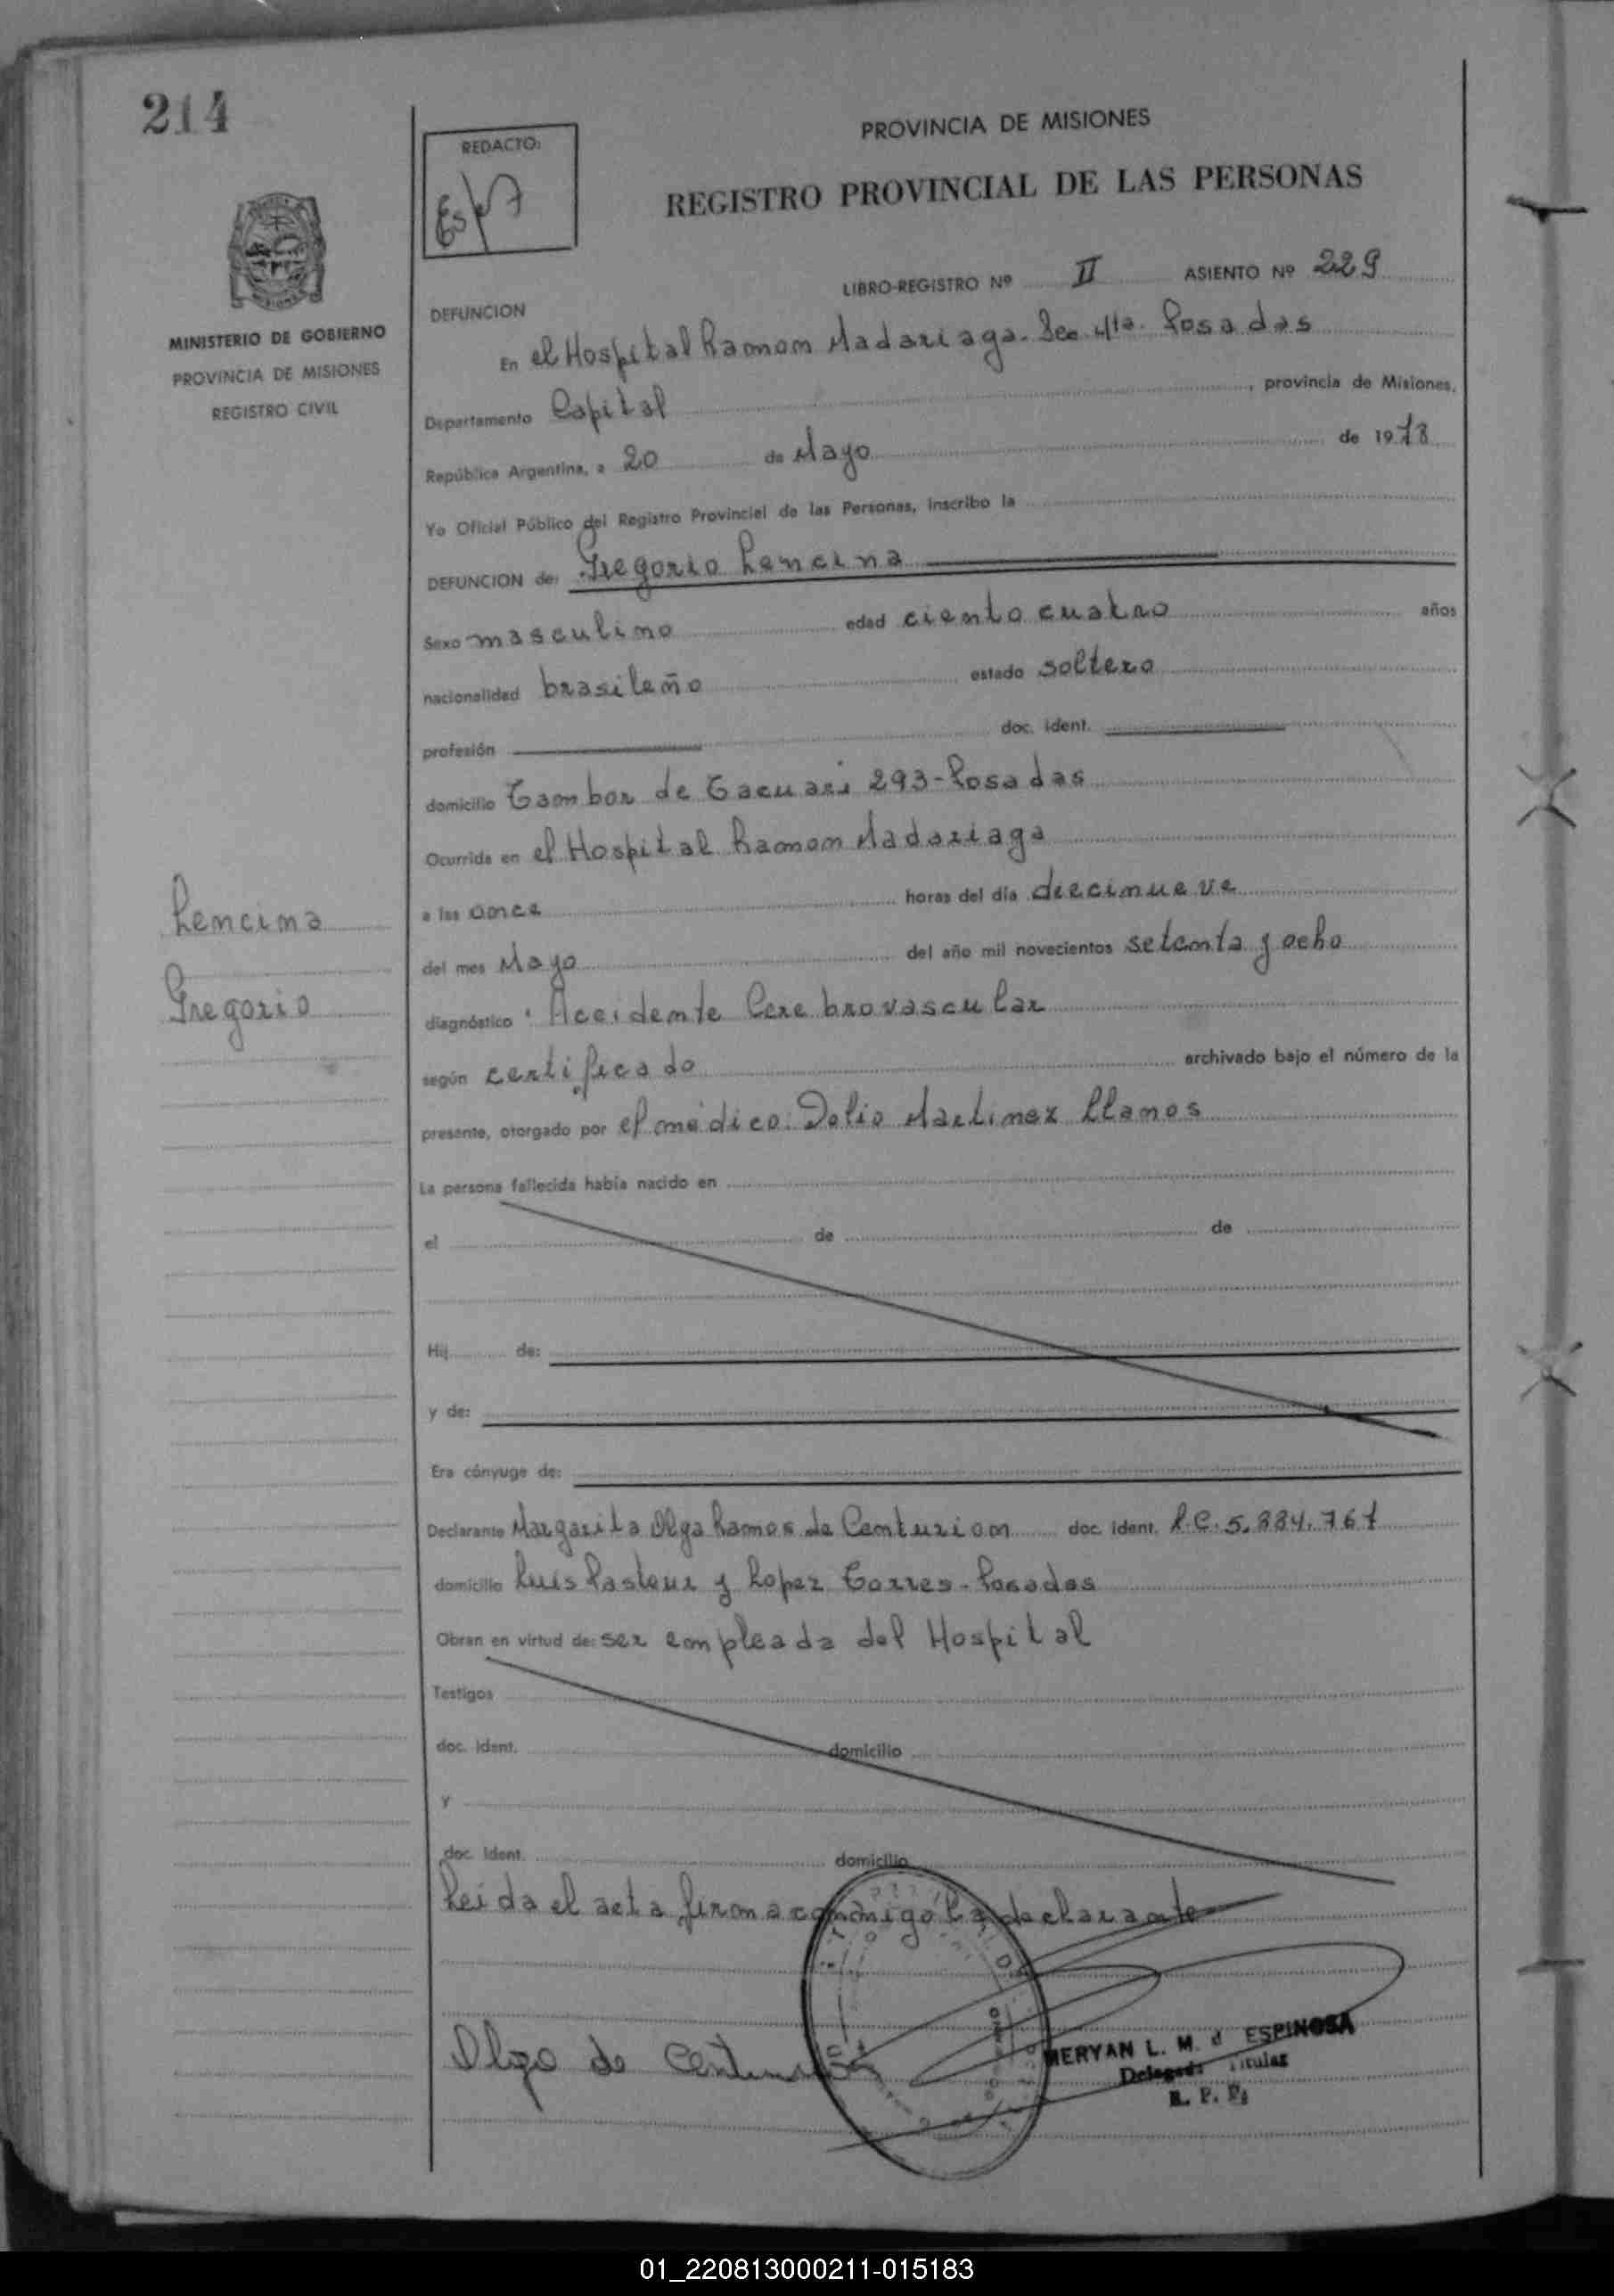 214
REDACTO:
PROVINCIA DE MISIONES
REGISTRO PROVINCIAL DE LAS PERSONAS
LIBRO-REGISTRO Nº II ASIENTO Nº 229
MINISTERIO DE GOBIERNO
PROVINCIA DE MISIONES
REGISTRO CIVIL
DEFUNCION
En el Hospital Ramon Madariaga. Sec. 4ta. Posadas
Departamento Capital, provincia de Misiones,
República Argentina, a 20 de Mayo de 1978
Yo Oficial Público del Registro Provincial de las Personas, inscribo la
DEFUNCION de: Gregorio Lencina
Sexo masculino edad ciento cuatro años
nacionalidad brasileño estado soltero
profesión doc. ident.
domicilio Tambor de Tacuari 293-Posadas
Ocurrida en el Hospital Ramon Madariaga
a las once horas del día diecinueve
del mes Mayo del año mil novecientos setenta y ocho
diagnóstico Accidente Cerebrovascular
según certificado archivado bajo el número de la
presente, otorgado por el médico: Delio Martinez Llanos
La persona fallecida había nacido en
el de de
Hij de:
y de:
Era cónyuge de:
Declarante Margarita Olga Ramos de Centurion doc. ident. L.C. 5.884.767
domicilio Luis Pasteur y Lopez Torres-Posadas
Obran en virtud de: ser empleada del Hospital
Testigos
doc. ident. domicilio
y
doc. ident. domicilio
Leida el acta firma conmigo la declarante
Lencina
Gregorio
Olga de Centurion
MERYAN L. M. d ESPINOSA
Delegada Titular
R. P. P.
01_220813000211-015183